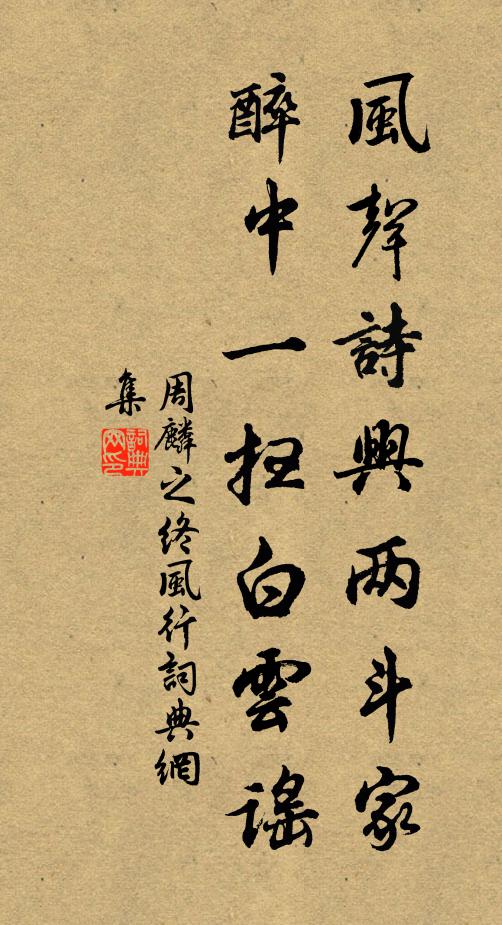 風聲詩興两斗家
醉中一扫白雲謠
周麟之終風行詞典網
集
詞典
网印